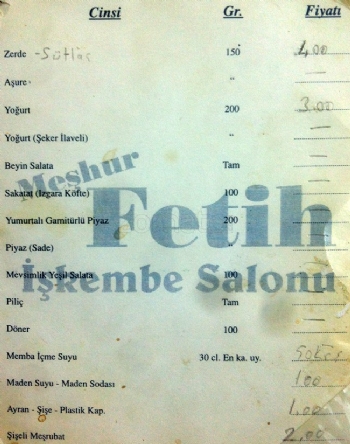 Cinsi Gr. Fiyatı
Zerde - Sütlaç 150 4,00
Aşure " —
Yoğurt 200 3.00
Yoğurt (Şeker İlaveli) " —
Beyin Salata Tam —
Meşhur
Sakatat (Izgara Köfte) 100 —
Fetih
Yumurtalı Garnitürlü Piyaz 200 —
Piyaz (Sade) " —
Mevsimlik Yeşil Salata 100
İşkembe Salonu
Piliç Tam —
Döner 100 —
Memba İçme Suyu 30 cl. En ka. uy.
Maden Suyu - Maden Sodası 1.00
Ayran - Şişe - Plastik Kap. 1,00
Şişeli Meşrubat 2,00